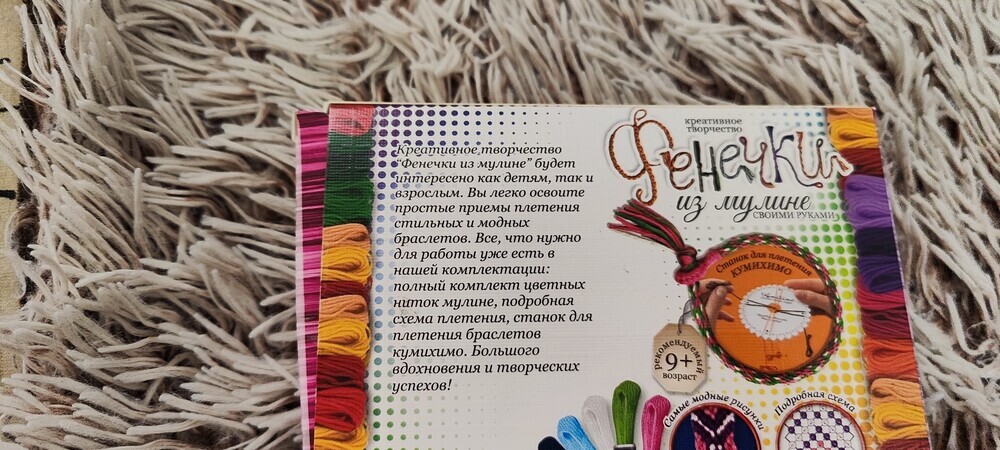 Креативное творчество
"Фенечки из мулине" будет
интересено как детям, так и
взрослым. Вы легко освоите
простые приемы плетения
стильных и модных
браслетов. Все, что нужно
для работы уже есть в
нашей комплектации:
полный комплект цветных
ниток мулине, подробная
схема плетения, станок для
плетения браслетов
кумихимо. Большого
вдохновения и творческих
успехов!
креативное
творчество
Фенечки
из мулине
СВОИМИ РУКАМИ
Станок для плетения
КУМИХИМО
рекомендуемый
9+
возраст
Самые модные рисунки
Подробная схема